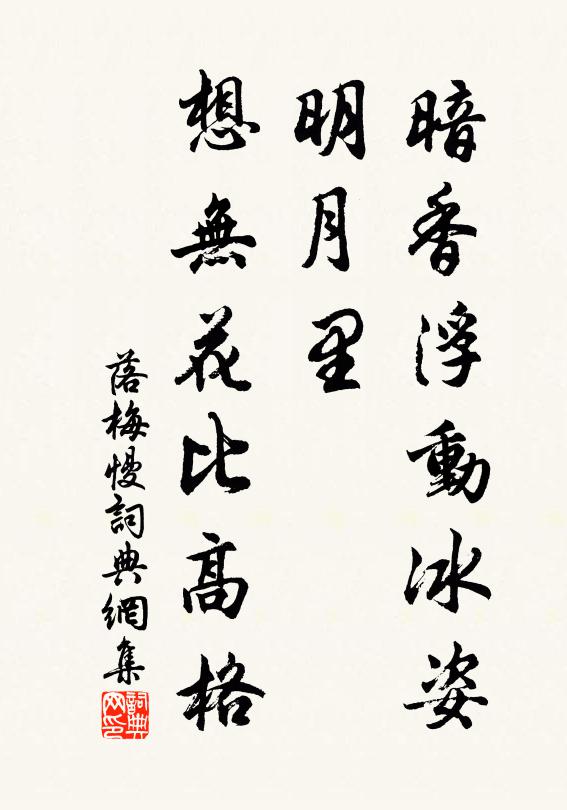 暗香浮動冰姿
明月里
想無花比高格
落梅慢詞典網集
詞典网印